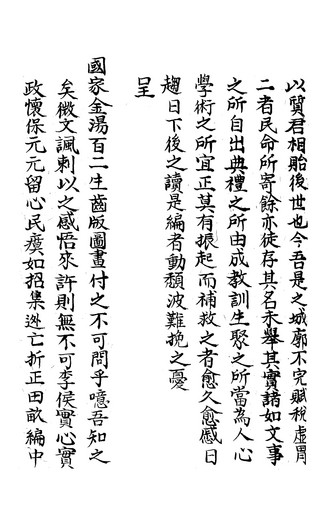 以貿君相貽後世也今吾是之城廓不完賦稅虛冒
二者民命所寄餘亦徒存其名未舉其實諸如文事
之所自出典禮之所由成教訓生聚之所當為人心
學術之所宜正其有振起而補救之者愈久愈感日
趨日下後之讀是編者動頹波難挽之憂
呈
國家金湯百二生齒版圖晝付之不可問乎噫吾知之
矣微文諷刺以之感悟來許則無不可李侯實心實
政懷保元元留心民瘼如招集逃亡折正田畝編中